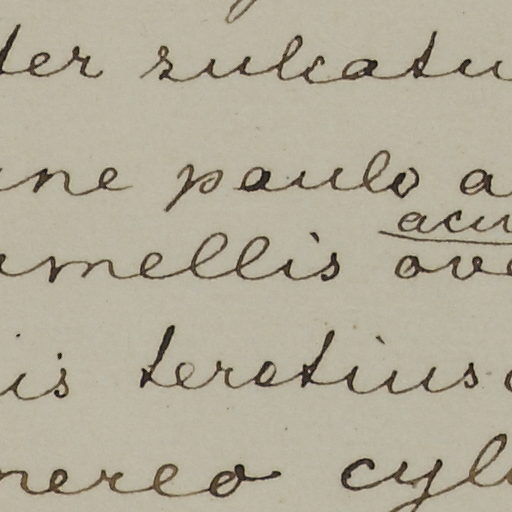 ter sulcatu
ine paulo a
acu
amellis ove
is teretiusc
nereo cyl